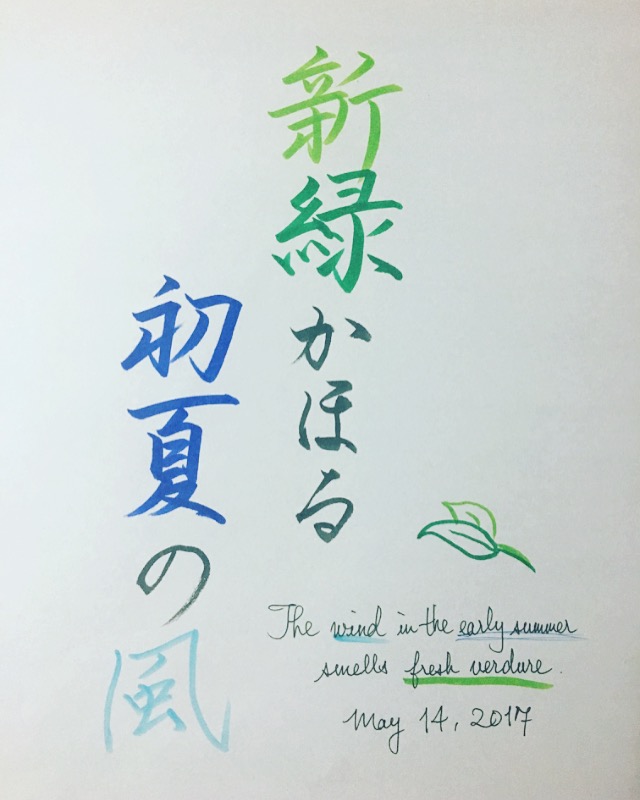 新緑かほる
初夏の風
The wind in the early summer
smells fresh verdure.
May 14, 2017